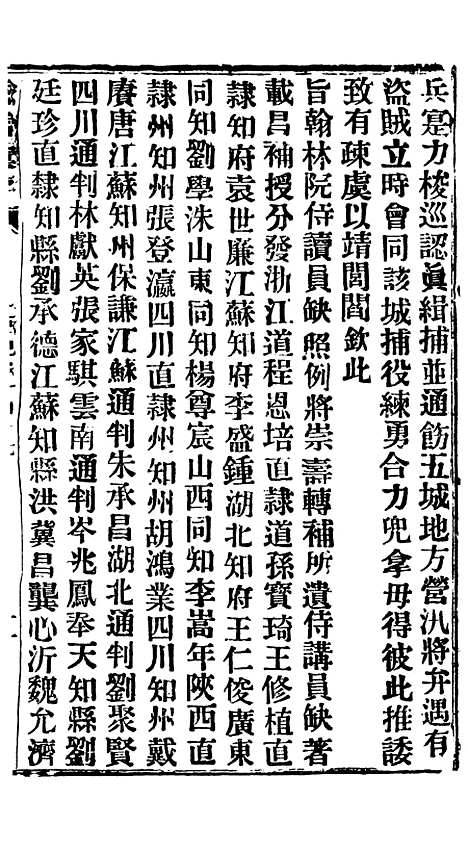 兵寔力梭巡認眞緝捕並通飭五城地方營汛將弁遇有
盜賊立時會同該城捕役練勇合力兜拿毋得彼此推諉
致有疎虞以靖閭閻欽此
旨翰林院侍讀員缺照例將崇壽轉補所遺侍講員缺著
載昌補授分發浙江道程恩培直隸道孫寶琦王修植直
隸知府袁世廉江蘇知府李盛鍾湖北知府王仁俊廣東
同知劉學洙山東同知楊尊宸山西同知李嵩年陝西直
隸州知州張登瀛四川直隸州知州胡鴻業四川知州戴
賡唐江蘇知州保謙江蘇通判朱承昌湖北通判劉聚賢
四川通判林獻英張家騏雲南通判岑兆鳳奉天知縣劉
廷珍直隸知縣劉承德江蘇知縣洪冀昌龔心沂魏允濟